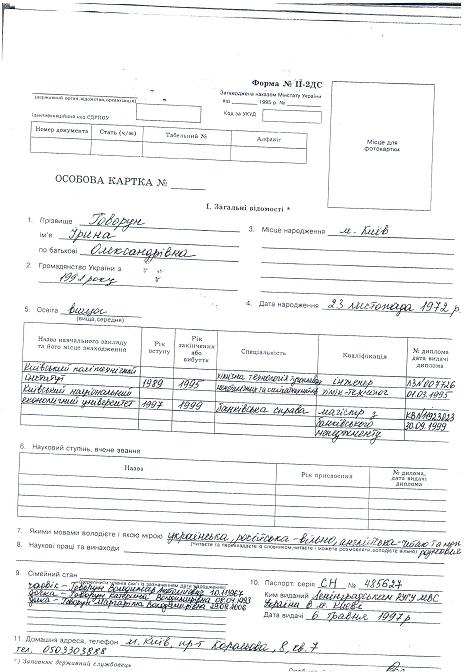 Форма № П-2ДС
(державний орган, відомство, організація)
Затверджена наказом Мінстату України
від 1995 р. №
Ідентифікаційний код ЄДРПОУ
Код за УКУД
Номер документа Стать (ч/ж) Табельний № Алфавіт
Місце для
фотокартки
ОСОБОВА КАРТКА №
I. Загальні відомості *
1. Прізвище Говорун
ім'я Ірина
по батькові Олександрівна
2. Громадянство України з
1991 року
3. Місце народження м. Київ
4. Дата народження 23 листопада 1972 р.
5. Освіта вища
(вища, середня)
Назва навчального закладу та його місце знаходження Рік вступу Рік закінчення або вибуття Спеціальність Кваліфікація № диплома дата видачі диплома
Київський політехнічний інститут 1989 1995 хімічна технологія інженер хімік-технолог 01.03.1995
Київський національний економічний університет 1997 1999 банківська справа магістр з банківського менеджменту 30.09.1999
6. Науковий ступінь, вчене звання
Назва Рік присвоєння № диплома, дата видачі диплома
7. Якими мовами володієте і якою мірою українська, російська - вільно, англійська - читаю та
(читаєте та перекладаєте зі словником, читаєте і можете розмовляти, володієте вільно) розмовляю
8. Наукові праці та винаходи
9. Сімейний стан
чоловік - Говорун Володимир 10.1967
дочка - Говорун Катерина Володимирівна 1993
дочка - Говорун Маргарита Володимирівна 29.08.2006
10. Паспорт: серія СН № 485627
Ким виданий Ленінградським РУГУ МВС
України в м. Києві
Дата видачі 6 травня 1997р
11. Домашня адреса, телефон м. Київ, пр-т 8, кв. 7
тел. 0503303888
*) Заповнює державний службовець